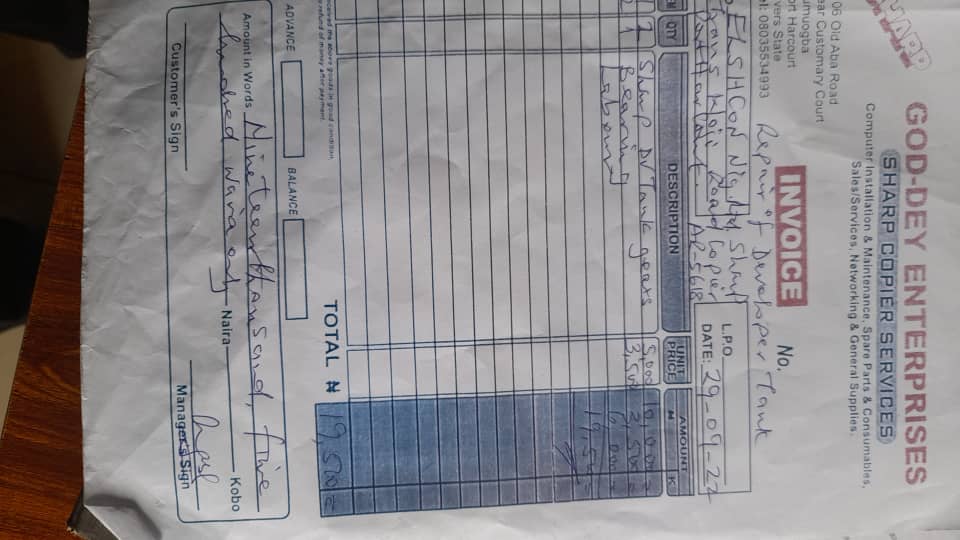 SHARP
GOD-DEY ENTERPRISES
SHARP COPIER SERVICES
Computer Installation & Maintenance, Spare Parts & Consumables,
Sales/Services, Networking & General Supplies.
06 Old Aba Road
ear Customary Court
umuogba
ort Harcourt
vers State
el: 08035534993
INVOICE
No.
Repair of Developer Tank
L.P.O
DATE: 29-09-22
Sharp
Trans Road Copier
Port Harcourt. AR-5618
QTY DESCRIPTION UNIT PRICE AMOUNT ₦ K
2 Sharp D/Tank gears 5,000
1 Bearing 3,500 3,500
Labour 6,000
19,500
TOTAL ₦ 19,500=
received the above goods in good condition
refund of money after payment.
ADVANCE BALANCE
Amount in Words Nineteen thousand, five
hundred naira only Naira Kobo
Customer's Sign Manager's Sign